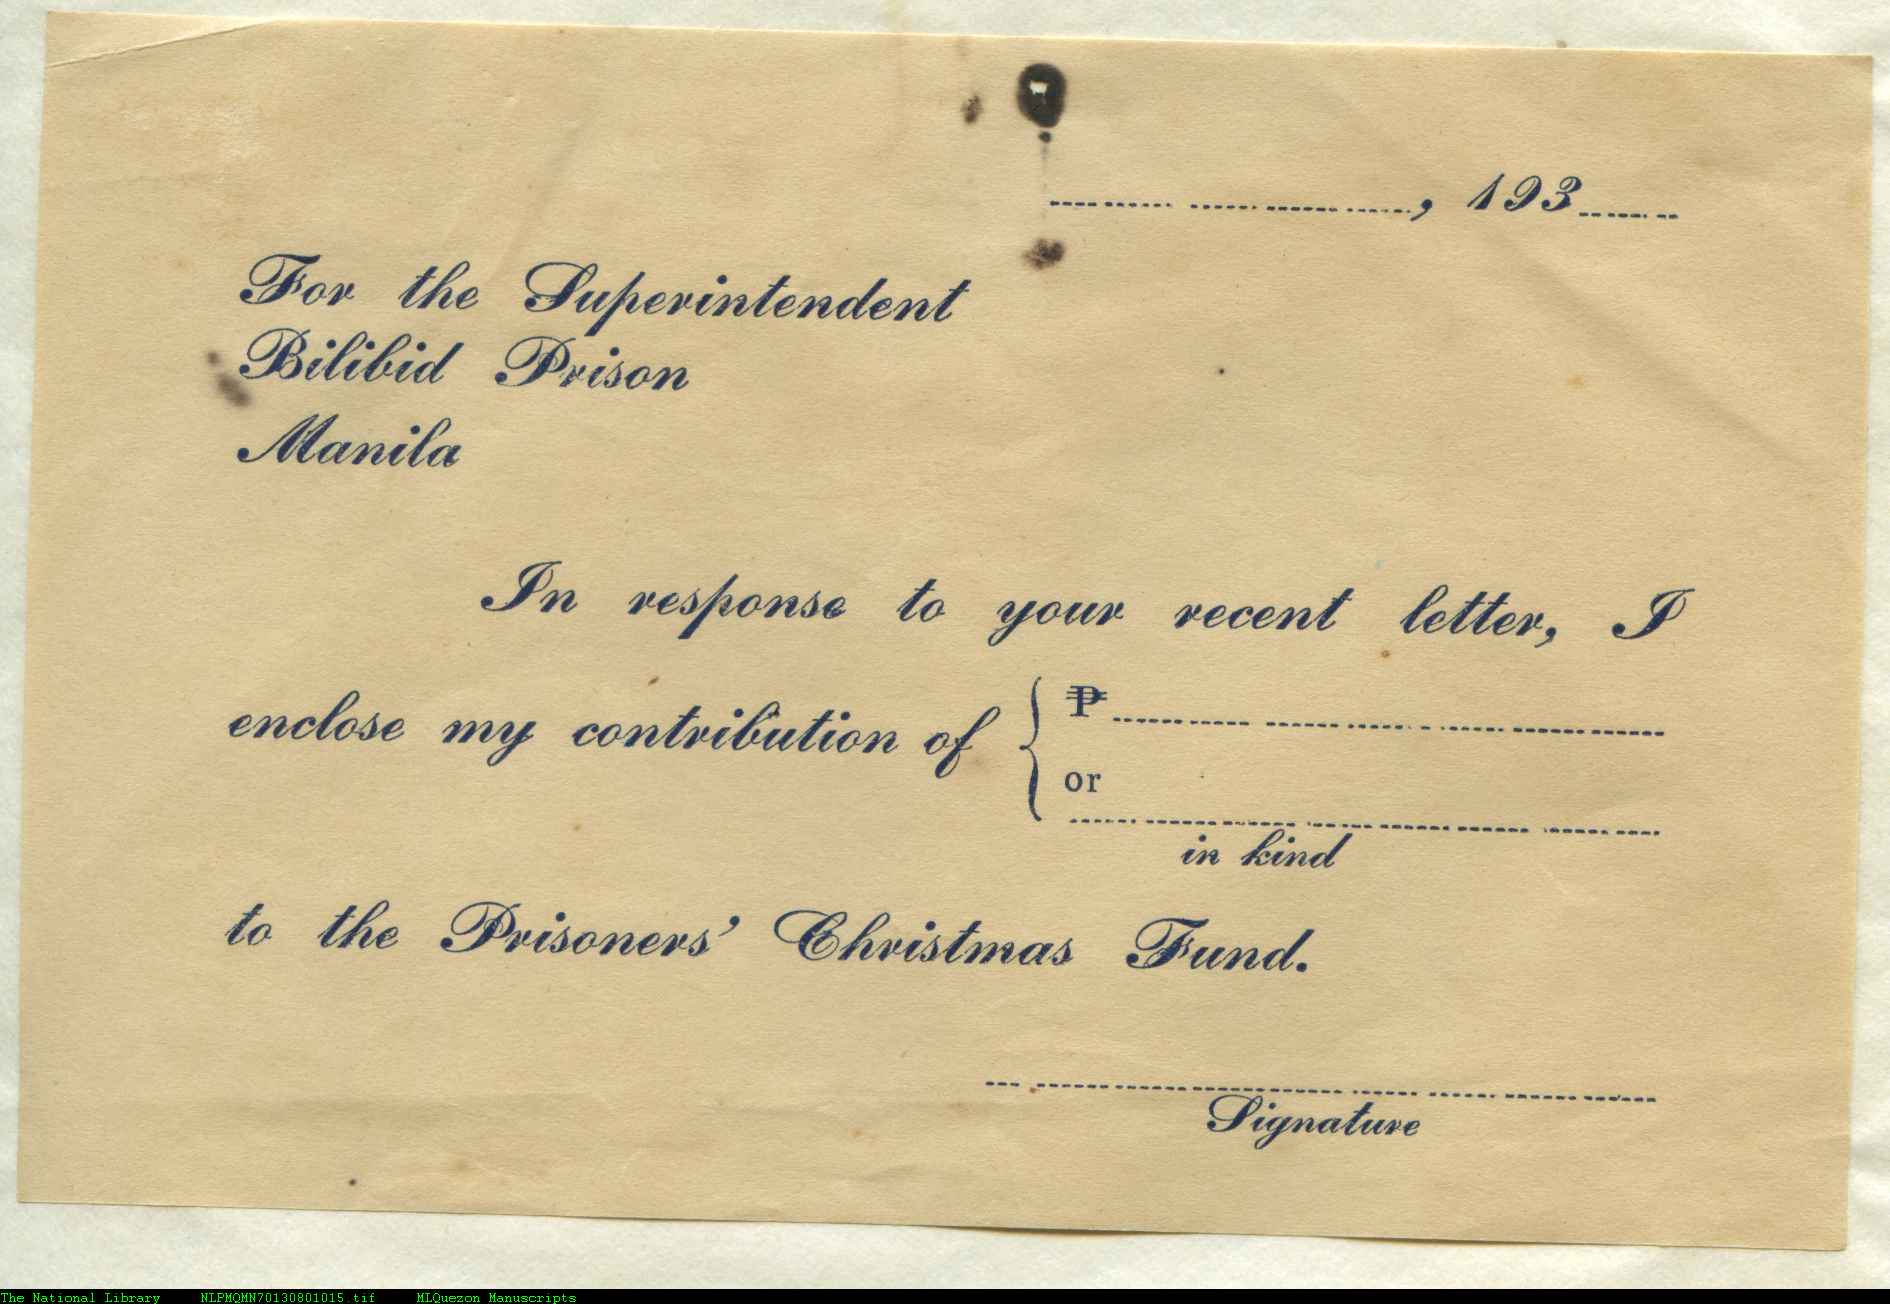 ........................, 193......
For the Superintendent
Bilibid Prison
Manila
In response to your recent letter, I
enclose my contribution of { ₱........................
or
........................
in kind
to the Prisoners' Christmas Fund.
........................
Signature
The National Library NLPMQMN70130801015.tif MLQuezon Manuscripts